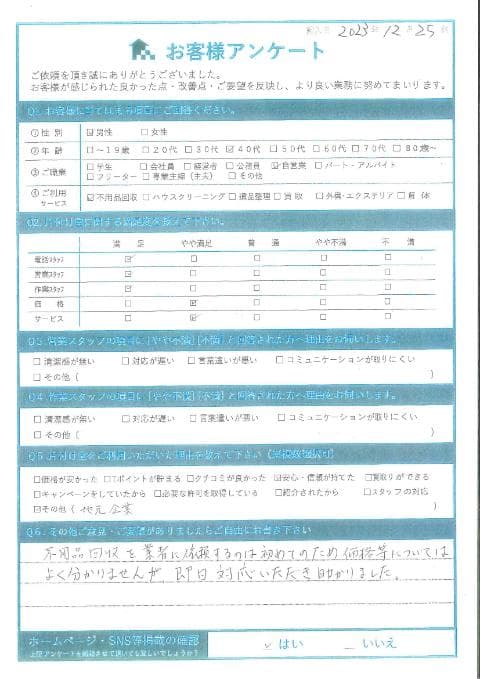 記入日 2023年12月25日
お客様アンケート
ご依頼を頂き誠にありがとうございました。
お客様が感じられた良かった点・改善点・ご要望を反映し、より良い業務に努めてまいります。
①性 別 ☑男性 □女性
②年 齢 □～19歳 □20代 □30代 ☑40代 □50代 □60代 □70代 □80歳～
③ご職業 □学生 □会社員 □経営者 □公務員 ☑自営業 □パート・アルバイト
□フリーター □専業主婦(主夫) □その他
④ご利用サービス ☑不用品回収 □ハウスクリーニング □遺品整理 □買取 □外構・エクステリア □解体
満足 やや満足 普通 やや不満 不満
電話スタッフ ☑ □ □ □ □
営業スタッフ ☑ □ □ □ □
作業スタッフ ☑ □ □ □ □
価格 □ ☑ □ □ □
サービス □ ☑ □ □ □
Q3.営業スタッフの項目に[やや不満][不満]と回答された方へ理由をお伺いします。
□清潔感が無い □対応が遅い □言葉遣いが悪い □コミュニケーションが取りにくい
□その他( )
Q4.作業スタッフの項目に[やや不満][不満]と回答された方へ理由をお伺いします。
□清潔感が無い □対応が遅い □言葉遣いが悪い □コミュニケーションが取りにくい
□その他( )
□価格が安かった □Tポイントが貯まる □クチコミが良かった ☑安心・信頼が持てた □買取りができる
□キャンペーンをしていたから □必要な許可を取得している □紹介されたから □スタッフの対応
☑その他(地元企業 )
Q6.その他ご意見・ご要望がありましたらご自由にお書き下さい
不用品回収を業者に依頼するのは初めてのため価格等については
よく分かりませんが、即日対応いただき助かりました。
ホームページ・SNS等掲載の確認 ☑はい □いいえ
上記アンケートを掲載させて頂いても宜しいでしょうか?